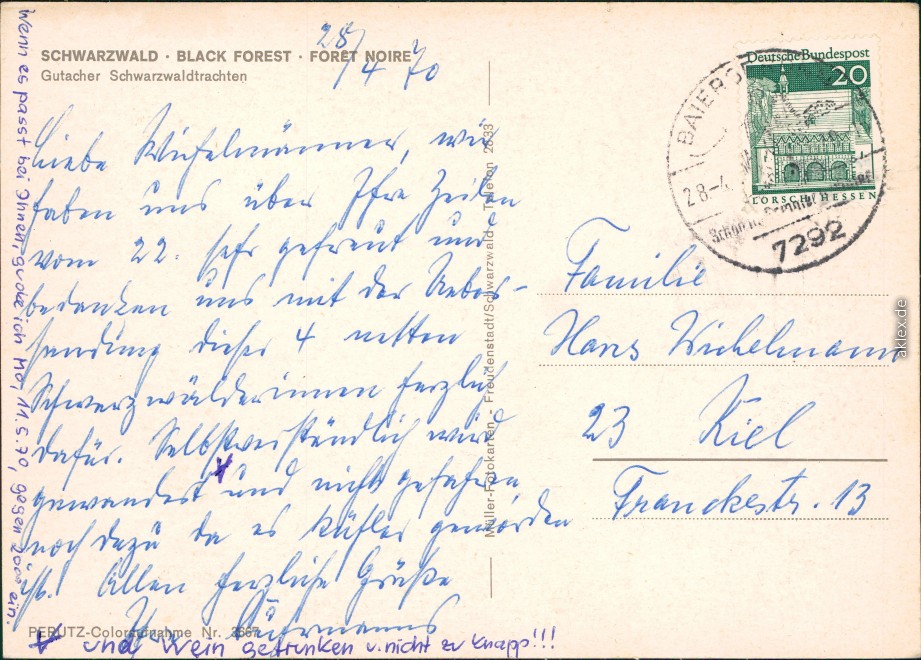 SCHWARZWALD · BLACK FOREST · FORÊT NOIRE
Gutacher Schwarzwaldtrachten
28/4 70
Liebe Wichelmänner, wir
haben uns über Ihre Zeilen
vom 22. sehr gefreut und
bedanken uns mit der Ueber-
sendung dieser 4 netten
Schwarzwälderinnen herzlich
dafür. Selbstverständlich wird
gewandert * und nicht gefahren
noch dazu da es kühler geworden
ist. Allen herzliche Grüße
Ihre
* und Wein getrunken u. nicht zu knapp!!!
Wenn es passt bei Ihnen, gucke ich Mo, 11.5.70, gegen 20°° ein.
PERUTZ-Coloraufnahme Nr.
Müller-Fotokarten Freudenstadt/Schwarzwald Telefon 2833
Deutsche Bundespost
20
LORSCH/HESSEN
28.-4.
7292
Familie
Hans Wichelmann
23 Kiel
Franckestr. 13
aklex.de